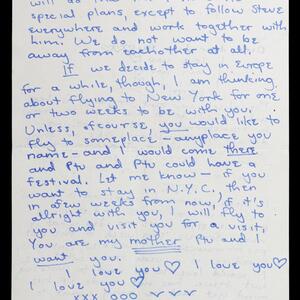 will do
special plans, except to follow Steve
everywhere and work together with
him. We do not want to be
away from eachother at all.
If we decide to stay in Europe
for a while, though, I am thinking
about flying to New York for one
or two weeks to be with you.
Unless, ofcourse, you would like to
fly to someplace — anyplace you
name — and I would come there
and Ptu and Ptu could have a
festival. Let me know — if you
want to stay in N.Y.C., then
in afew weeks from now, if it's
allright with you, I will fly to
you and visit you for a visit,
You are my mother Ptu and I
want you.
I love you♡ I love you♡
I love you♡
xxx ooo